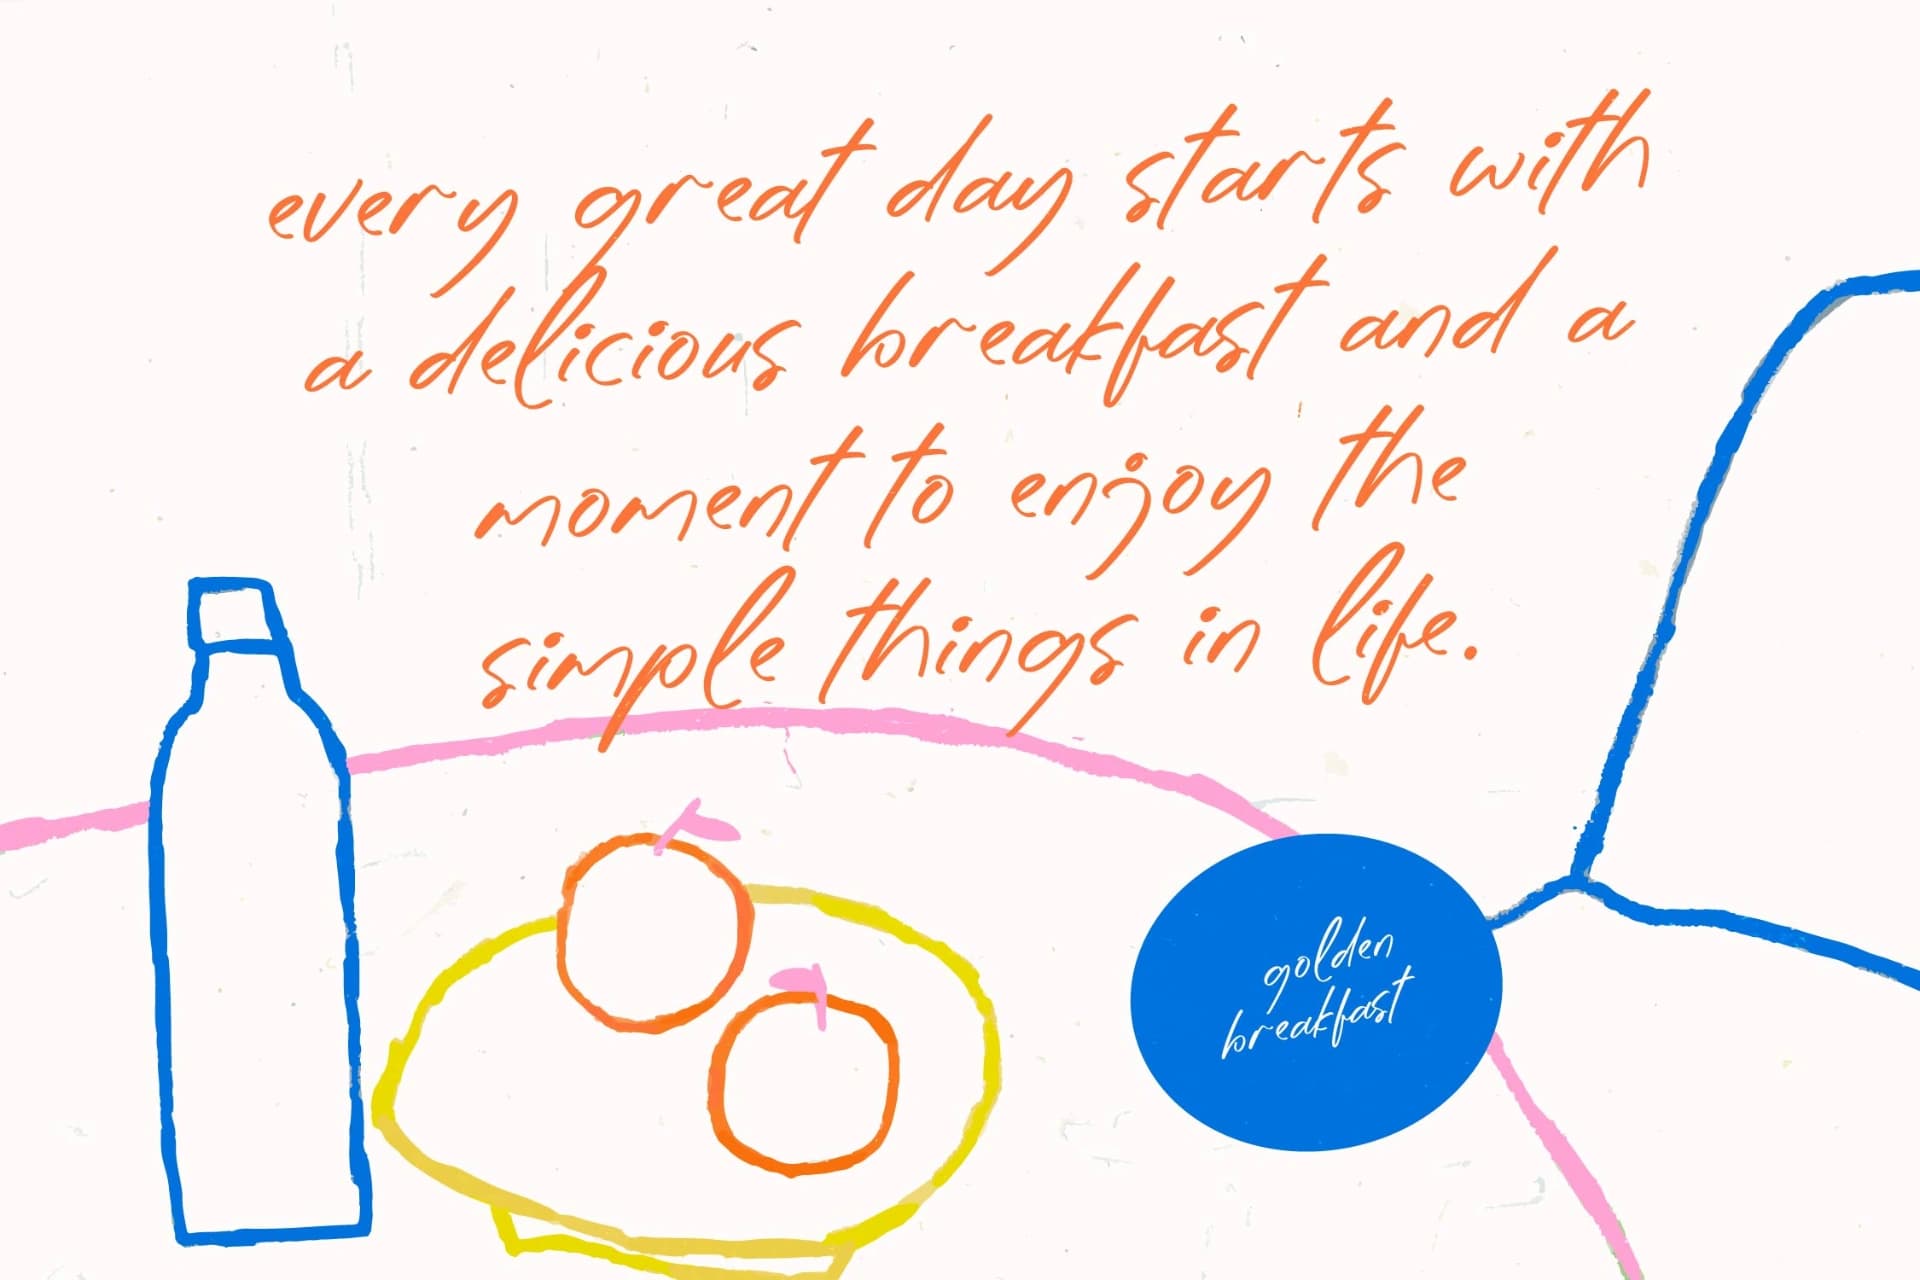 every great day starts with
a delicious breakfast and a
moment to enjoy the
simple things in life.
golden
breakfast